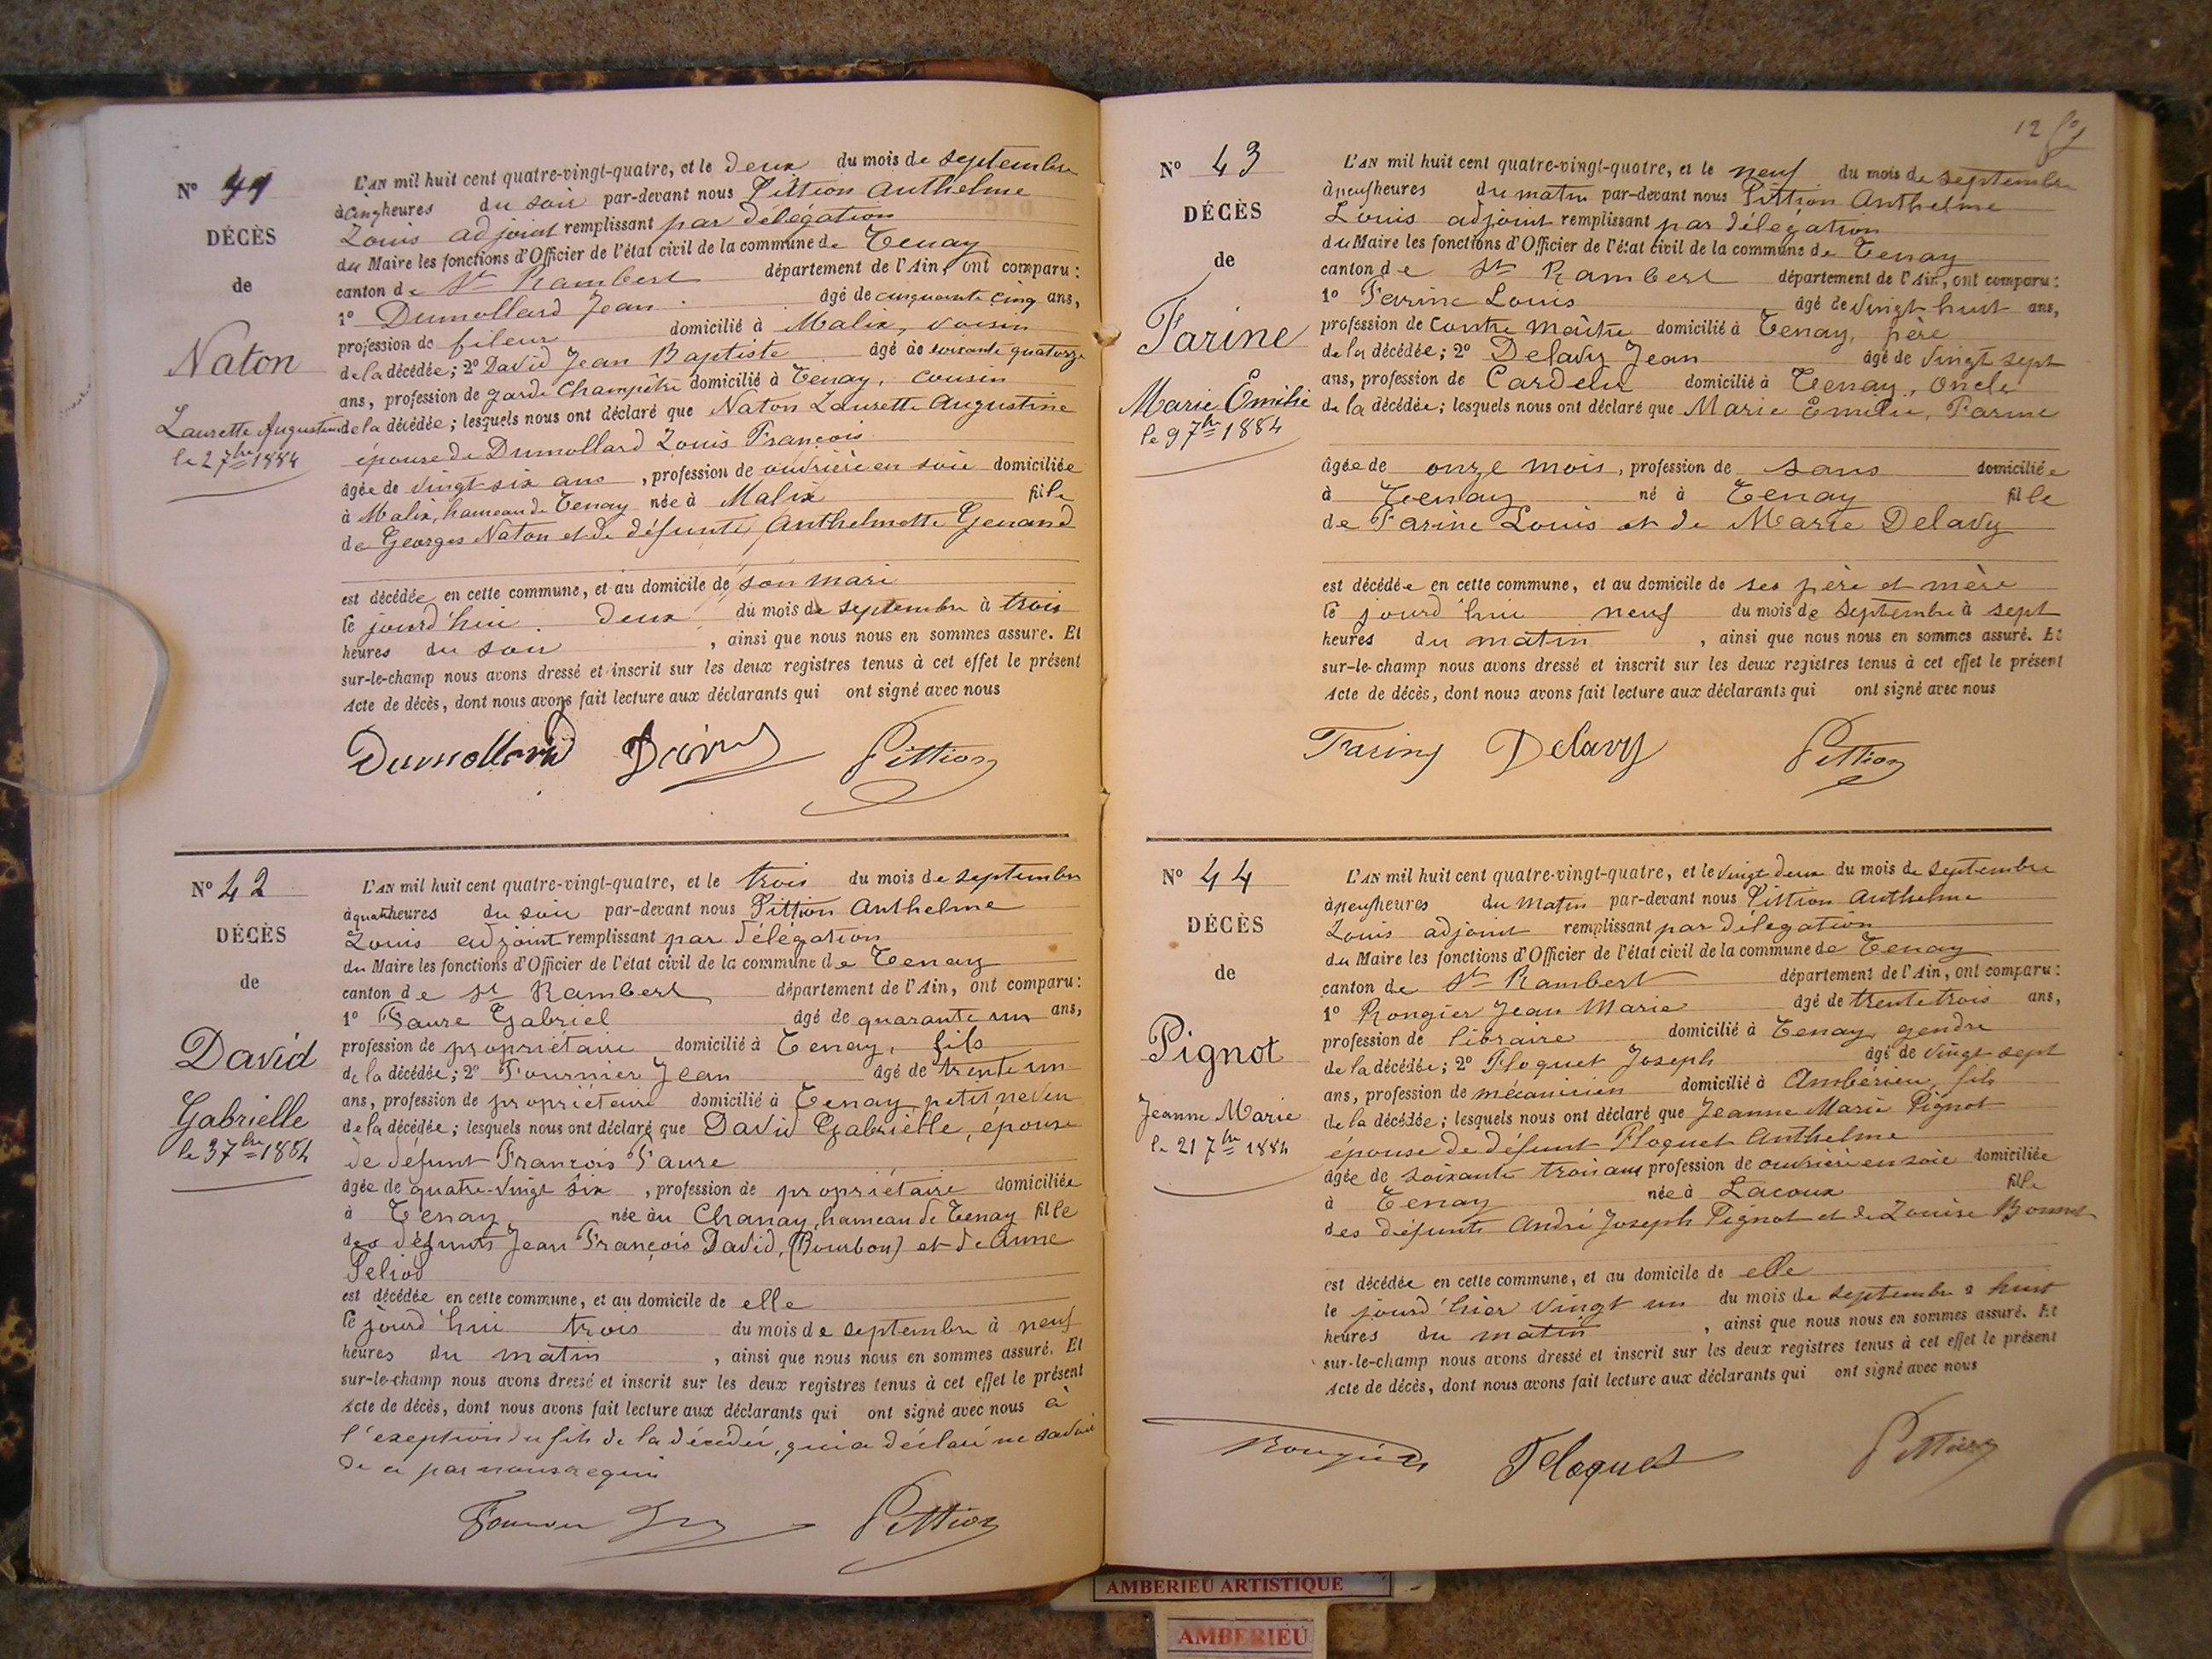 N° 41
DÉCÈS
de
Naton
Laurette Augustine
le 2 7bre 1884
L'AN mil huit cent quatre-vingt-quatre, et le deux du mois de septembre
à cinq heures du soir par-devant nous Pittion Anthelme
Louis adjoint remplissant par délégation
du Maire les fonctions d'Officier de l'état civil de la commune de Tenay
canton de St Rambert département de l'Ain, ont comparu:
1° Dumollard Jean âgé de cinquante cinq ans,
profession de fileur domicilié à Malix, voisin
de la décédée; 2° David Jean Baptiste âgé de soixante quatorze
ans, profession de garde Champêtre domicilié à Tenay, cousin
de la décédée; lesquels nous ont déclaré que Naton Laurette Augustine
épouse de Dumollard Louis François
âgée de vingt six ans, profession de ouvrière en soie domiciliée
à Malix, hameau de Tenay née à Malix fille
de Georges Naton et de défunte Anthelmette Genand
est décédée en cette commune, et au domicile de son mari
le jourd'hui deux du mois de septembre à trois
heures du soir, ainsi que nous nous en sommes assuré. Et
sur-le-champ nous avons dressé et inscrit sur les deux registres tenus à cet effet le présent
Acte de décès, dont nous avons fait lecture aux déclarants qui ont signé avec nous
Dumollard David Pittion
N° 42
DÉCÈS
de
David
Gabrielle
le 3 7bre 1884
L'AN mil huit cent quatre-vingt-quatre, et le trois du mois de septembre
à quatre heures du soir par-devant nous Pittion Anthelme
Louis adjoint remplissant par délégation
du Maire les fonctions d'Officier de l'état civil de la commune de Tenay
canton de St Rambert département de l'Ain, ont comparu:
1° Faure Gabriel âgé de quarante un ans,
profession de propriétaire domicilié à Tenay, fils
de la décédée; 2° Fournier Jean âgé de trente un
ans, profession de propriétaire domicilié à Tenay, petit neveu
de la décédée; lesquels nous ont déclaré que David Gabrielle, épouse
de défunt François Faure
âgée de quatre-vingt six, profession de propriétaire domiciliée
à Tenay née au Chanay, hameau de Tenay fille
des défunts Jean François David, (Bourbon) et de Anne
Peliod
est décédée en cette commune, et au domicile de elle
le jourd'hui trois du mois de septembre à neuf
heures du matin, ainsi que nous nous en sommes assuré. Et
sur-le-champ nous avons dressé et inscrit sur les deux registres tenus à cet effet le présent
Acte de décès, dont nous avons fait lecture aux déclarants qui ont signé avec nous à
l'exeption du fils de la décédée, qui a déclaré ne savoir
de ce par nous requis
Fournier Pittion
12
N° 43
DÉCÈS
de
Farine
Marie Emilie
le 9 7bre 1884
L'AN mil huit cent quatre-vingt-quatre, et le neuf du mois de septembre
à neuf heures du matin par-devant nous Pittion Anthelme
Louis adjoint remplissant par délégation
du Maire les fonctions d'Officier de l'état civil de la commune de Tenay
canton de St Rambert département de l'Ain, ont comparu:
1° Farine Louis âgé de vingt huit ans,
profession de contre maître domicilié à Tenay, père
de la décédée; 2° Delavy Jean âgé de vingt sept
ans, profession de Cardeur domicilié à Tenay, Oncle
de la décédée; lesquels nous ont déclaré que Marie Emilie, Farine
âgée de onze mois, profession de sans domiciliée
à Tenay né à Tenay fille
de Farine Louis et de Marie Delavy
est décédée en cette commune, et au domicile de ses père et mère
le jourd'hui neuf du mois de septembre à sept
heures du matin, ainsi que nous nous en sommes assuré. Et
sur-le-champ nous avons dressé et inscrit sur les deux registres tenus à cet effet le présent
Acte de décès, dont nous avons fait lecture aux déclarants qui ont signé avec nous
Farine Delavy Pittion
N° 44
DÉCÈS
de
Pignot
Jeanne Marie
le 21 7bre 1884
L'AN mil huit cent quatre-vingt-quatre, et le vingt deux du mois de septembre
à neuf heures du matin par-devant nous Pittion Anthelme
Louis adjoint remplissant par délégation
du Maire les fonctions d'Officier de l'état civil de la commune de Tenay
canton de St Rambert département de l'Ain, ont comparu:
1° Rongier Jean Marie âgé de trente trois ans,
profession de libraire domicilié à Tenay, gendre
de la décédée; 2° Floquet Joseph âgé de vingt sept
ans, profession de mécanicien domicilié à Ambérieu, fils
de la décédée; lesquels nous ont déclaré que Jeanne Marie Pignot
épouse de défunt Floquet Anthelme
âgée de soixante trois ans profession de ouvrière en soie domiciliée
à Tenay née à Lacoux fille
des défunts André Joseph Pignot et de Louise Bonnet
est décédée en cette commune, et au domicile de elle
le jourd'hier vingt un du mois de septembre à huit
heures du matin, ainsi que nous nous en sommes assuré. Et
sur-le-champ nous avons dressé et inscrit sur les deux registres tenus à cet effet le présent
Acte de décès, dont nous avons fait lecture aux déclarants qui ont signé avec nous
Rongier Floquet Pittion
AMBERIEU ARTISTIQUE
AMBERIEU